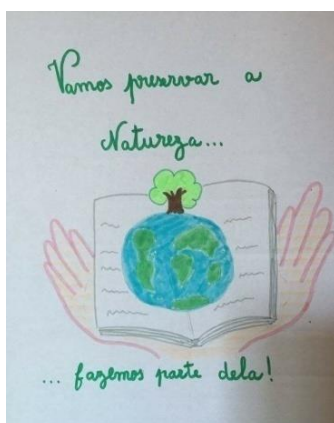 Vamos preservar a
Natureza...
... fazemos parte dela!